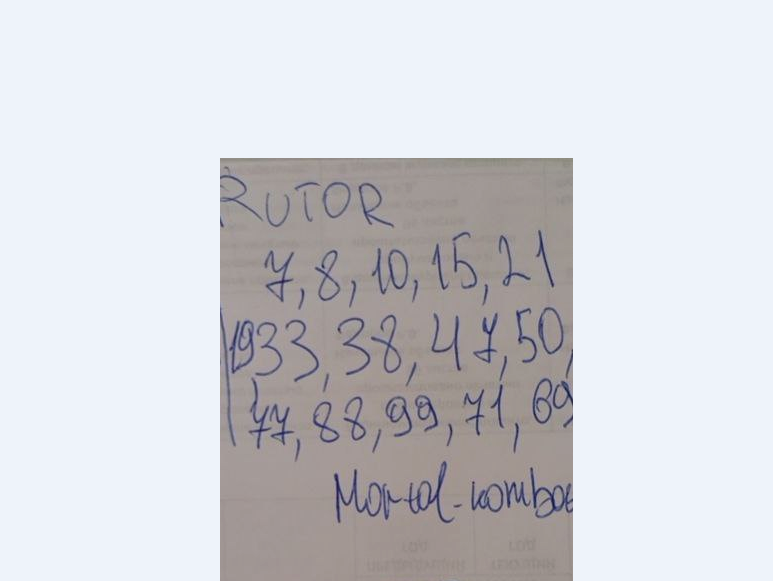 RUTOR
7, 8, 10, 15, 21
1933, 38, 47, 50,
77, 88, 99, 71, 69
Mortal-kombat